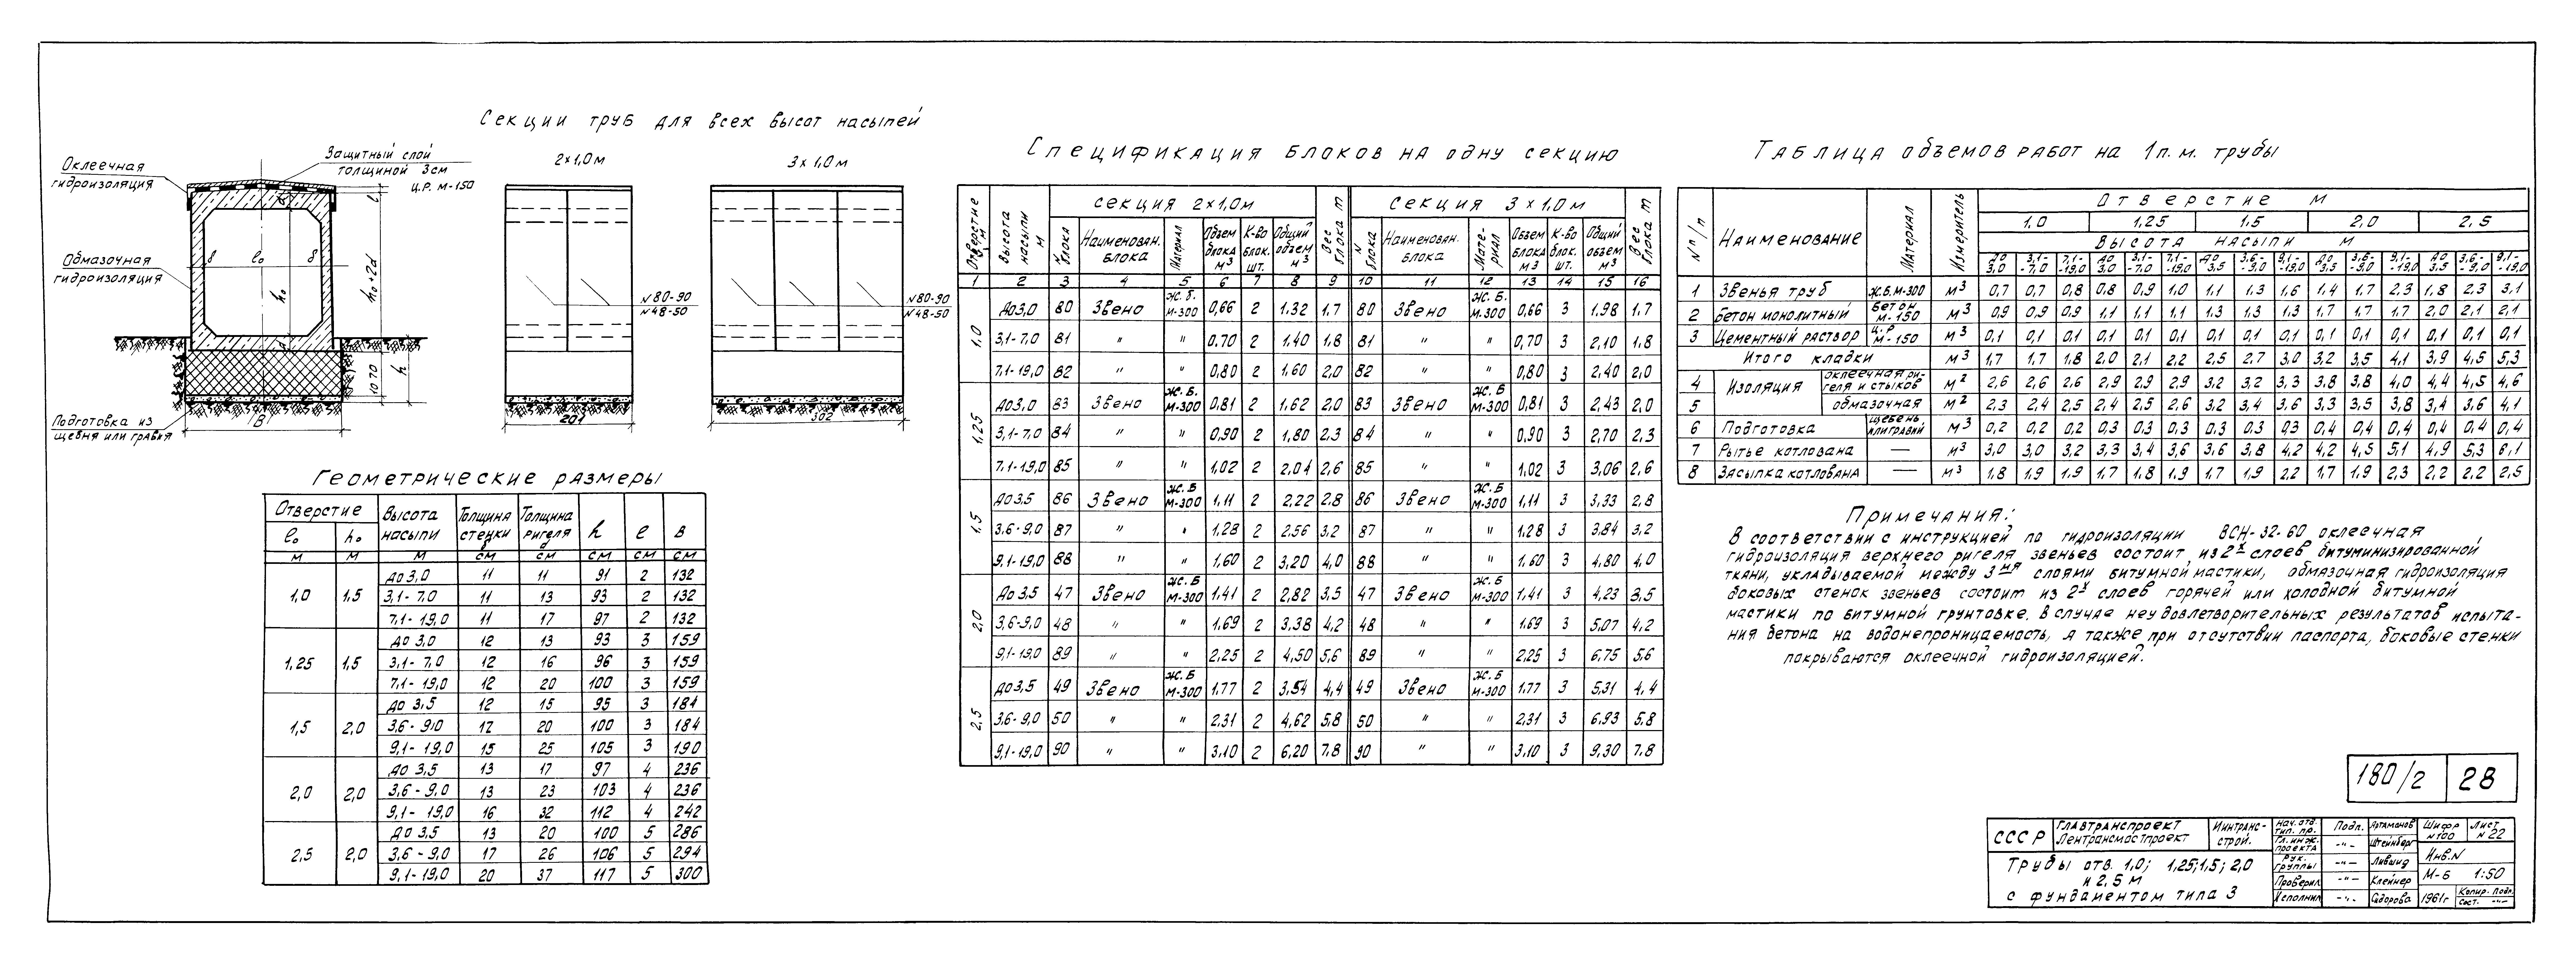 Секции труб для всех высот насыпей
Оклеечная
гидроизоляция
Защитный слой
толщиной 3см
ц.р. м-150
Обмазочная
гидроизоляция
δ l₀ δ
h₀
h₀+2d
1070
h
Подготовка из
щебня или гравия
В
2×1,0м
N80-90
N48-50
201
3×1,0м
N80-90
N48-50
302
Геометрические размеры
Отверстие | Высота насыпи | Толщина стенки δ | Толщина ригеля d | h | e | в
l₀ | h₀
м | м | м | см | см | см | см | см
1,0 | 1,5 | до 3,0 | 11 | 11 | 91 | 2 | 132
3,1-7,0 | 11 | 13 | 93 | 2 | 132
7,1-19,0 | 11 | 17 | 97 | 2 | 132
1,25 | 1,5 | до 3,0 | 12 | 13 | 93 | 3 | 159
3,1-7,0 | 12 | 16 | 96 | 3 | 159
7,1-19,0 | 12 | 20 | 100 | 3 | 159
1,5 | 2,0 | до 3,5 | 12 | 15 | 95 | 3 | 184
3,6-9,0 | 12 | 20 | 100 | 3 | 184
9,1-19,0 | 15 | 25 | 105 | 3 | 190
2,0 | 2,0 | до 3,5 | 13 | 17 | 97 | 4 | 236
3,6-9,0 | 13 | 23 | 103 | 4 | 236
9,1-19,0 | 16 | 32 | 112 | 4 | 242
2,5 | 2,0 | до 3,5 | 13 | 20 | 100 | 5 | 286
3,6-9,0 | 17 | 26 | 106 | 5 | 294
9,1-19,0 | 20 | 37 | 117 | 5 | 300
Спецификация блоков на одну секцию
Отверстие м | Высота насыпи м | секция 2×1,0м | Вес блока т | секция 3×1,0м | Вес блока т
N блока | Наименован. блока | Материал | Объем блока м³ | К-во блок. шт. | Общий объем м³ | N блока | Наименован. блока | Материал | Объем блока м³ | К-во блок. шт. | Общий объем м³
1 | 2 | 3 | 4 | 5 | 6 | 7 | 8 | 9 | 10 | 11 | 12 | 13 | 14 | 15 | 16
1,0 | до3,0 | 80 | Звено | ж.б. м-300 | 0,66 | 2 | 1,32 | 1,7 | 80 | Звено | ж.б. м-300 | 0,66 | 3 | 1,98 | 1,7
3,1-7,0 | 81 | " | " | 0,70 | 2 | 1,40 | 1,8 | 81 | " | " | 0,70 | 3 | 2,10 | 1,8
7,1-19,0 | 82 | " | " | 0,80 | 2 | 1,60 | 2,0 | 82 | " | " | 0,80 | 3 | 2,40 | 2,0
1,25 | до3,0 | 83 | Звено | ж.б. м-300 | 0,81 | 2 | 1,62 | 2,0 | 83 | Звено | ж.б. м-300 | 0,81 | 3 | 2,43 | 2,0
3,1-7,0 | 84 | " | " | 0,90 | 2 | 1,80 | 2,3 | 84 | " | " | 0,90 | 3 | 2,70 | 2,3
7,1-19,0 | 85 | " | " | 1,02 | 2 | 2,04 | 2,6 | 85 | " | " | 1,02 | 3 | 3,06 | 2,6
1,5 | до3,5 | 86 | Звено | ж.б м-300 | 1,11 | 2 | 2,22 | 2,8 | 86 | Звено | ж.б м-300 | 1,11 | 3 | 3,33 | 2,8
3,6-9,0 | 87 | " | " | 1,28 | 2 | 2,56 | 3,2 | 87 | " | " | 1,28 | 3 | 3,84 | 3,2
9,1-19,0 | 88 | " | " | 1,60 | 2 | 3,20 | 4,0 | 88 | " | " | 1,60 | 3 | 4,80 | 4,0
2,0 | до3,5 | 47 | Звено | ж.б м-300 | 1,41 | 2 | 2,82 | 3,5 | 47 | Звено | ж.б м-300 | 1,41 | 3 | 4,23 | 3,5
3,6-9,0 | 48 | " | " | 1,69 | 2 | 3,38 | 4,2 | 48 | " | " | 1,69 | 3 | 5,07 | 4,2
9,1-19,0 | 89 | " | " | 2,25 | 2 | 4,50 | 5,6 | 89 | " | " | 2,25 | 3 | 6,75 | 5,6
2,5 | до3,5 | 49 | Звено | ж.б м-300 | 1,77 | 2 | 3,54 | 4,4 | 49 | Звено | ж.б м-300 | 1,77 | 3 | 5,31 | 4,4
3,6-9,0 | 50 | " | " | 2,31 | 2 | 4,62 | 5,8 | 50 | " | " | 2,31 | 3 | 6,93 | 5,8
9,1-19,0 | 90 | " | " | 3,10 | 2 | 6,20 | 7,8 | 90 | " | " | 3,10 | 3 | 9,30 | 7,8
Таблица объемов работ на 1 п.м. трубы
N п/п | Наименование | Материал | Измеритель | Отверстие м
1,0 | 1,25 | 1,5 | 2,0 | 2,5
Высота насыпи м
до 3,0 | 3,1-7,0 | 7,1-19,0 | до 3,0 | 3,1-7,0 | 7,1-19,0 | до 3,5 | 3,6-9,0 | 9,1-19,0 | до 3,5 | 3,6-9,0 | 9,1-19,0 | до 3,5 | 3,6-9,0 | 9,1-19,0
1 | Звенья труб | ж.б.м-300 | м³ | 0,7 | 0,7 | 0,8 | 0,8 | 0,9 | 1,0 | 1,1 | 1,3 | 1,6 | 1,4 | 1,7 | 2,3 | 1,8 | 2,3 | 3,1
2 | Бетон монолитный | бетон м-150 | м³ | 0,9 | 0,9 | 0,9 | 1,1 | 1,1 | 1,1 | 1,3 | 1,3 | 1,3 | 1,7 | 1,7 | 1,7 | 2,0 | 2,1 | 2,1
3 | Цементный раствор | ц.р м-150 | м³ | 0,1 | 0,1 | 0,1 | 0,1 | 0,1 | 0,1 | 0,1 | 0,1 | 0,1 | 0,1 | 0,1 | 0,1 | 0,1 | 0,1 | 0,1
Итого кладки | м³ | 1,7 | 1,7 | 1,8 | 2,0 | 2,1 | 2,2 | 2,5 | 2,7 | 3,0 | 3,2 | 3,5 | 4,1 | 3,9 | 4,5 | 5,3
4 | Изоляция | оклеечная ригеля и стыков | м² | 2,6 | 2,6 | 2,6 | 2,9 | 2,9 | 2,9 | 3,2 | 3,2 | 3,3 | 3,8 | 3,8 | 4,0 | 4,4 | 4,5 | 4,6
5 | обмазочная | м² | 2,3 | 2,4 | 2,5 | 2,4 | 2,5 | 2,6 | 3,2 | 3,4 | 3,6 | 3,3 | 3,5 | 3,8 | 3,4 | 3,6 | 4,1
6 | Подготовка | щебень или гравий | м³ | 0,2 | 0,2 | 0,2 | 0,3 | 0,3 | 0,3 | 0,3 | 0,3 | 0,3 | 0,4 | 0,4 | 0,4 | 0,4 | 0,4 | 0,4
7 | Рытье котлована | — | м³ | 3,0 | 3,0 | 3,2 | 3,3 | 3,4 | 3,6 | 3,6 | 3,8 | 4,2 | 4,2 | 4,5 | 5,1 | 4,9 | 5,3 | 6,1
8 | Засыпка котлована | — | м³ | 1,8 | 1,9 | 1,9 | 1,7 | 1,8 | 1,9 | 1,7 | 1,9 | 2,2 | 1,7 | 1,9 | 2,3 | 2,2 | 2,2 | 2,5
Примечания:
В соответствии с инструкцией по гидроизоляции ВСН-32-60 оклеечная
гидроизоляция верхнего ригеля звеньев состоит из 2х слоев битуминизированной
ткани, укладываемой между 3мя слоями битумной мастики, обмазочная гидроизоляция
боковых стенок звеньев состоит из 2х слоев горячей или холодной битумной
мастики по битумной грунтовке. В случае неудовлетворительных результатов испыта-
ния бетона на водонепроницаемость, а также при отсутствии паспорта, боковые стенки
покрываются оклеечной гидроизоляцией.
180/2 | 28
СССР | Главтранспроект Лентрансмостпроект | Минтранс-строй.
Трубы отв. 1,0; 1,25; 1,5; 2,0
и 2,5 м
с фундаментом типа 3
Нач. отд. тип. пр. | Подп. | Артамонов | Шифр N100 | Лист N22
Гл. инж. проекта | -"- | Штейнберг | Инв.N
Рук. группы | -"- | Лившиц
Проверил | -"- | Клейнер | М-б 1:50
Исполнил | -"- | Сидорова | 1961г | Копир. Подп.
Сост. -"-